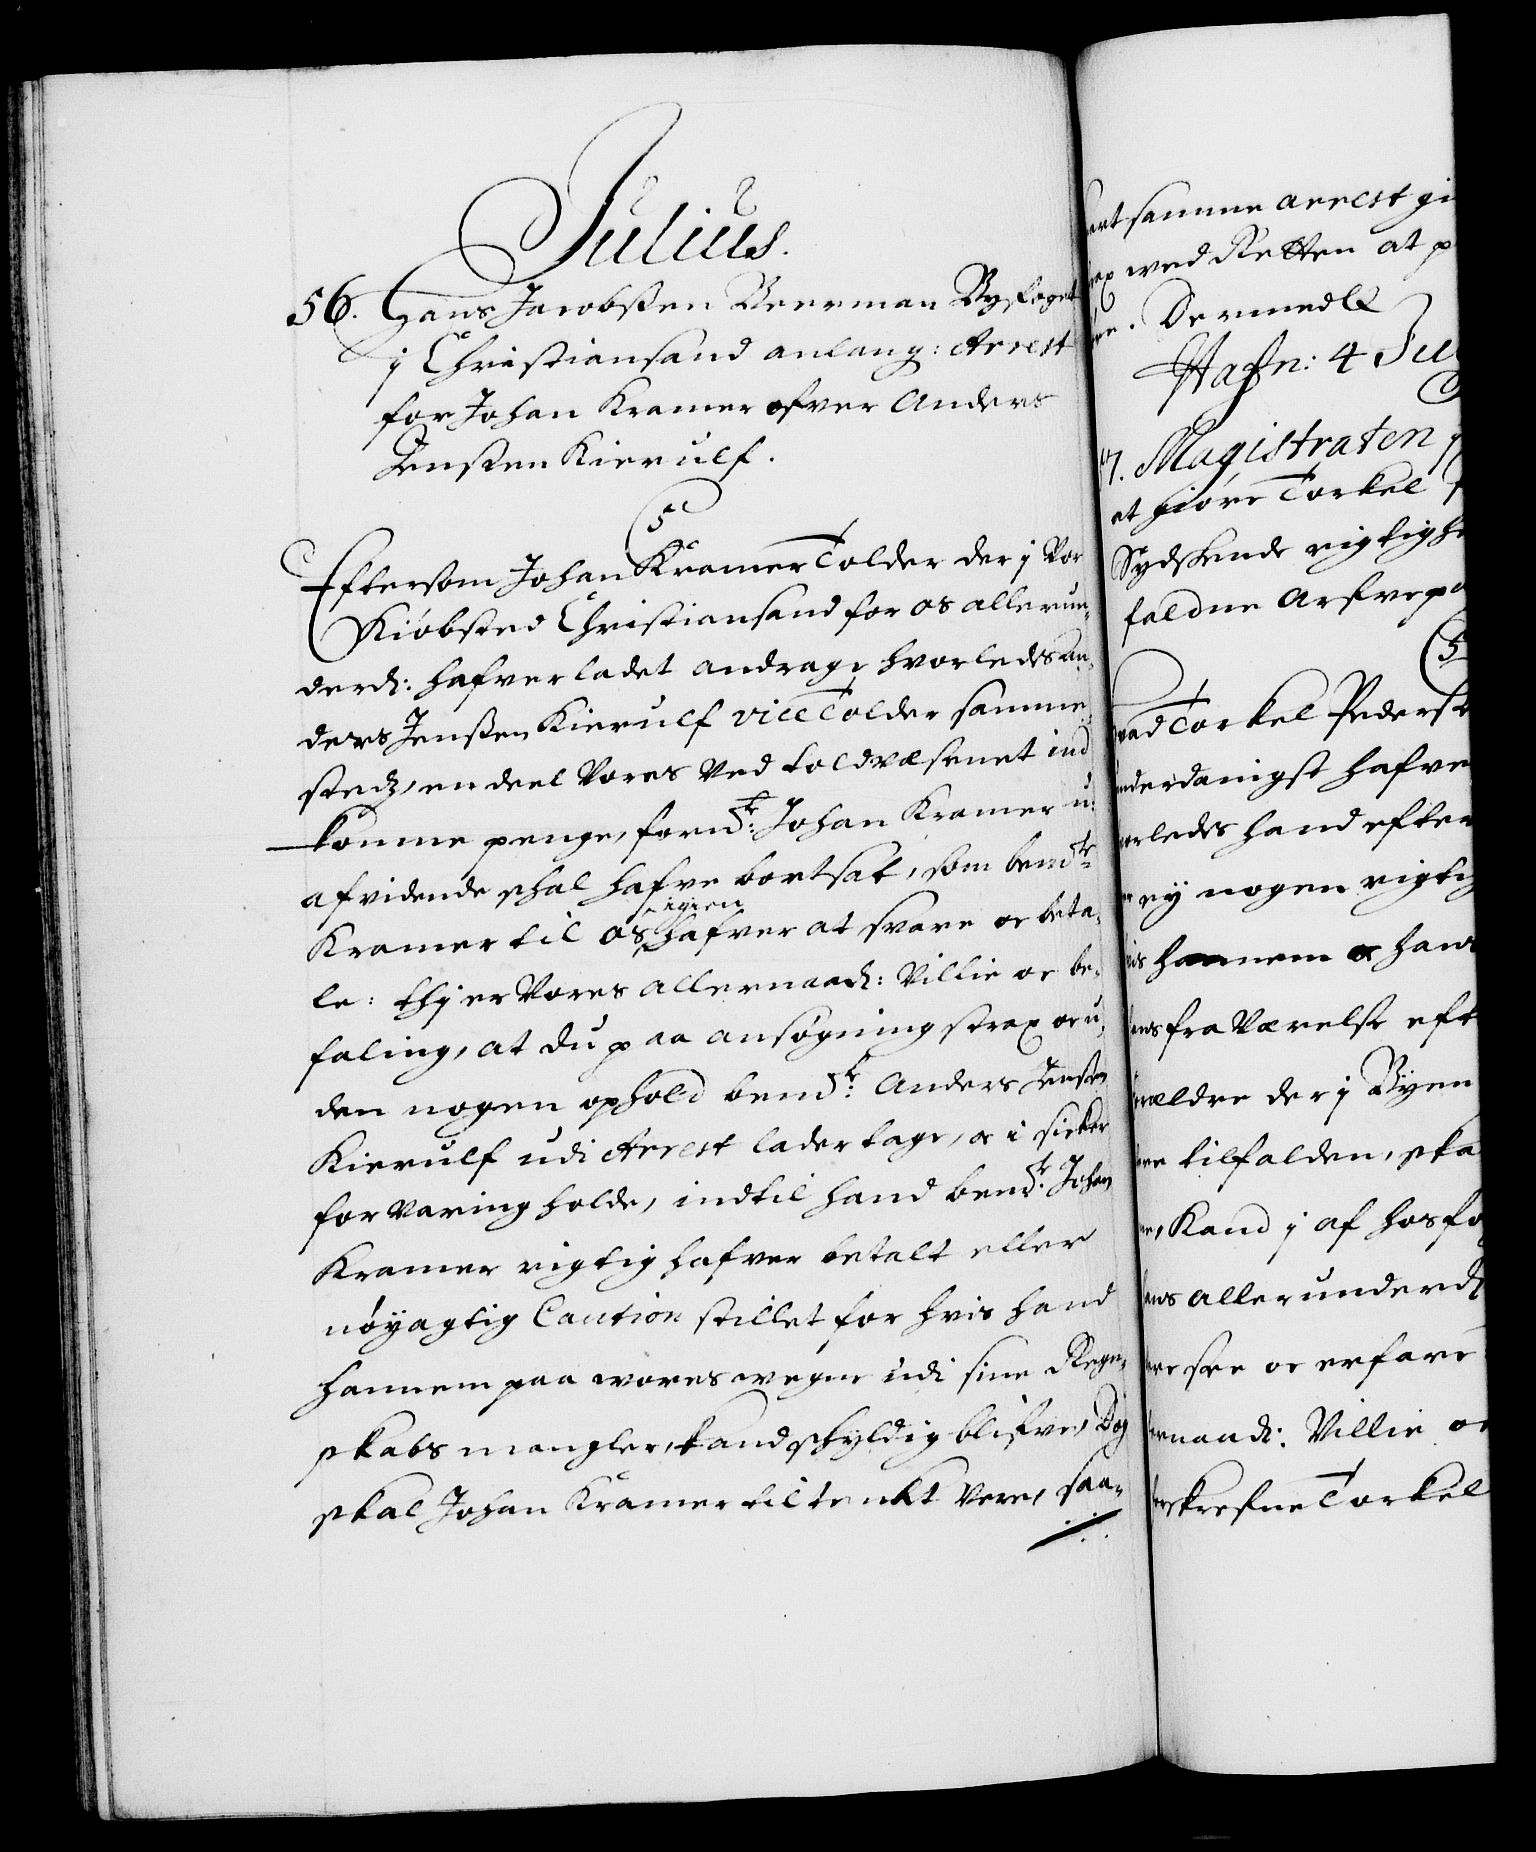 Julius.
56. Hans Jacobßen Beerman Byfoget
j Christiansand anlang: Arrest
for Johan Kramer ofver Anders
Jenßen Kierulf.
5
Eftersom Johan Kramer Tolder der j Vor
Kiöbsted Christiansand for os allerun-
derd: hafver ladet andrage hvorledes An-
ders Jenßen Kierulf vice Tolder samme-
stedz, en deel Vores Ved toldvæsenet ind
komne penge, fornd: Johan Kramer u-
afvidende skal hafve bortsat, som bemd:
igien
Kramer til os hafver at svare oc beta-
le: thj er Vores allernaad: Villie oc be-
faling, at du paa ansøgning strax oc u-
den nogen ophold bemd: Anders Jenßen
Kierulf udi Arrest lader tage, oc i sicker
forvaring holde, indtil hand bemd: Johan
Kramer rigtig hafver betalt eller
nöyagtig Caution stillet for hvis hand
hannem paa wores wegne udi sine Regn-
skabs mangler, kand skyldig blifve, Dog
skal Johan Kramer til tenckt Vere, saa-
samme arrest gi
wed Retten at p
Dermed &
Hafn: 4 Ju
7. Magistraten j
at giöre Torkel
Sydskende rigtighe
faldne Arfvepa
5
Torkel Peders
underdanigst hafve
hand efter
ey nogen rigtig
hannem oc hans
fraværelse eft
der j Byen
tilfalden, ska
Kand j af hosfø
allerunderd
see oc erfare
Villie oc
Torkel